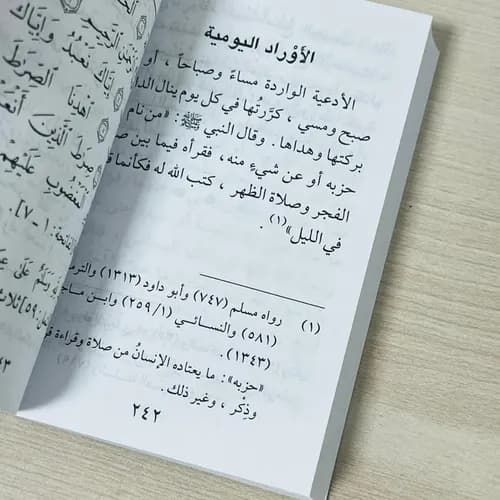 الأَوْراد اليومية
الأدعية الواردة مساءً وصباحاً ، أو
صبح ومسي ، كرَّرتُها في كل يوم ينال
بركتها وهداها. وقال النبي ﷺ: «من نام
حزبه أو عن شيءٍ منه، فقرأه فيما بين
الفجر وصلاة الظهر ، كتب الله له فكأنما
في الليل»(١) .
(١) رواه مسلم (٧٤٧) وأبو داود (١٣١٣)
(٥٨١) والنسائي (٢٥٩/١) وابن
(١٣٤٣).
«حزبه»: ما يعتاده الإنسانُ من صلاة وقراءة
وذِكْر ، وغير ذلك.
٢٤٢
إِيَّاكَ نَعْبُدُ وَإِيَّاكَ
اهْدِنَا الصِّرَاطَ
صِرَاطَ الَّذِينَ
عَلَيْهِمْ
١-٧].